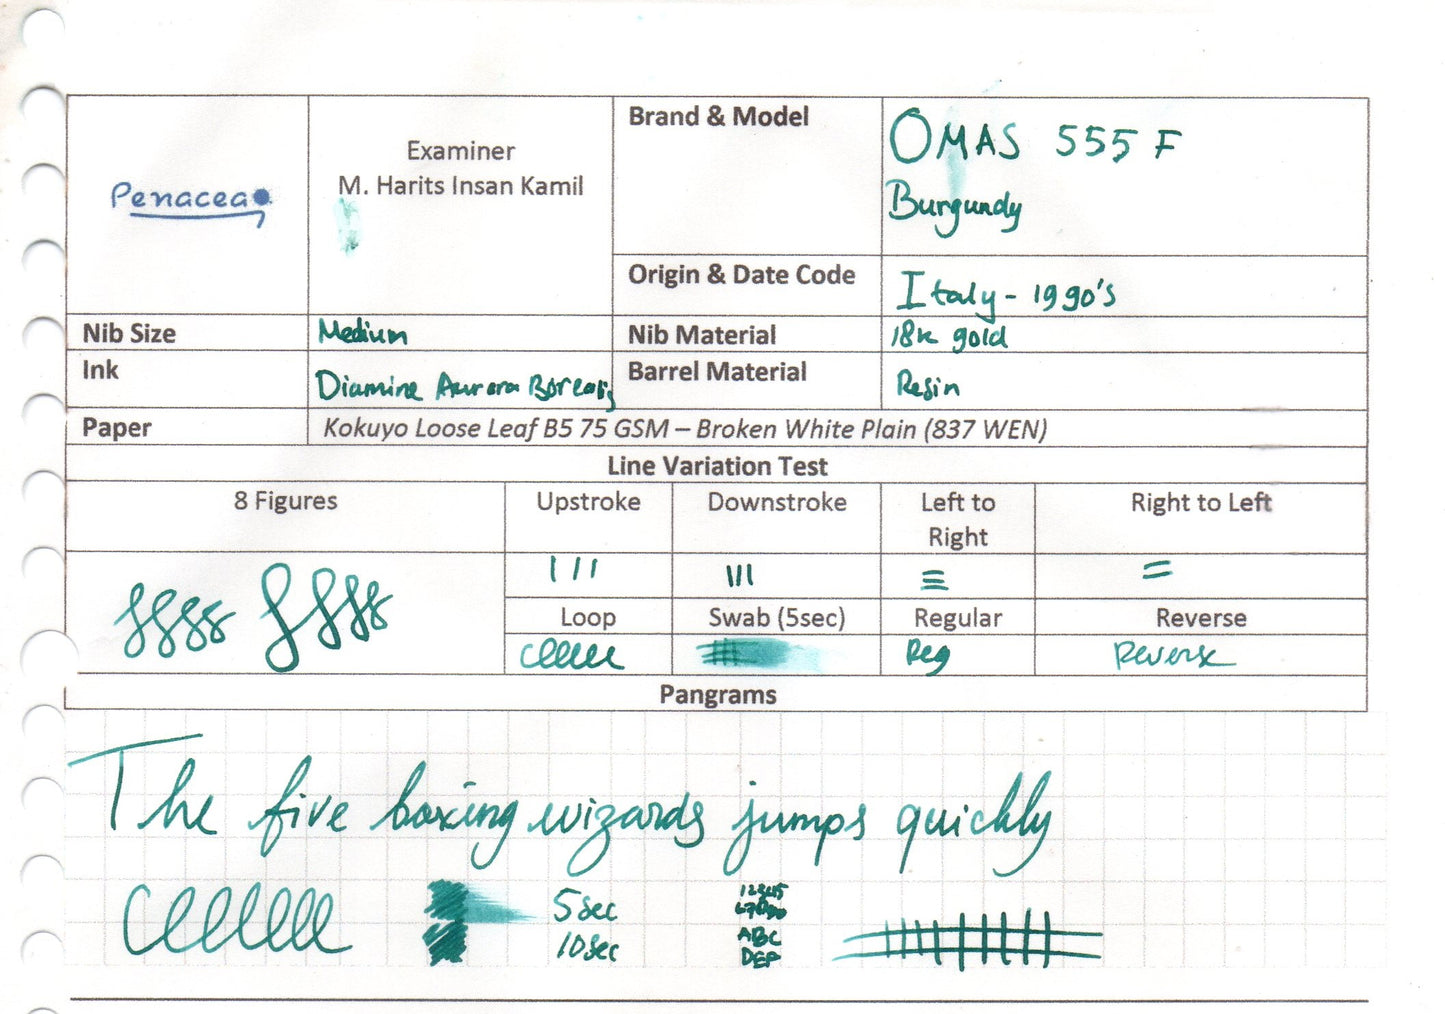 Penacea
Examiner
M. Harits Insan Kamil
Brand & Model
OMAS 555 F
Burgundy
Origin & Date Code
Italy - 1990's
Nib Size
Medium
Nib Material
18k gold
Ink
Diamine Aurora Borealis
Barrel Material
Resin
Paper
Kokuyo Loose Leaf B5 75 GSM – Broken White Plain (837 WEN)
Line Variation Test
8 Figures
Upstroke
Downstroke
Left to
Right
Right to Left
Loop
Swab (5sec)
Regular
Reverse
Reg
Reverse
Pangrams
The five boxing wizards jumps quickly
5sec
10sec
12345
67890
ABC
DEF